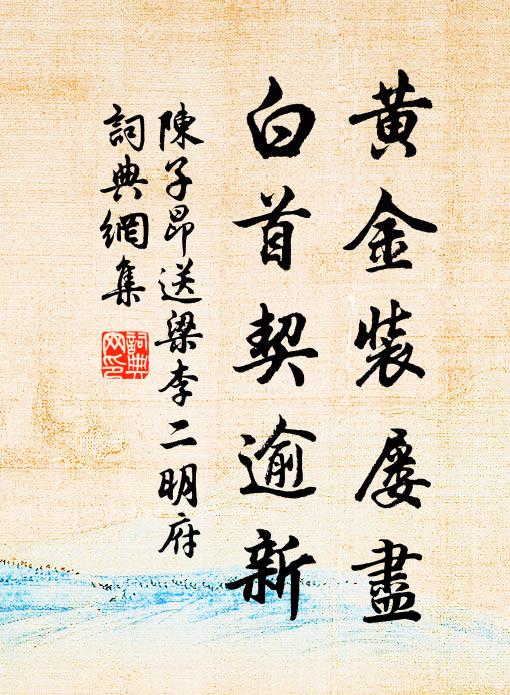 黃金裝屢盡
白首契逾新
陳子昂送梁李二明府
詞典網集
詞典
网印